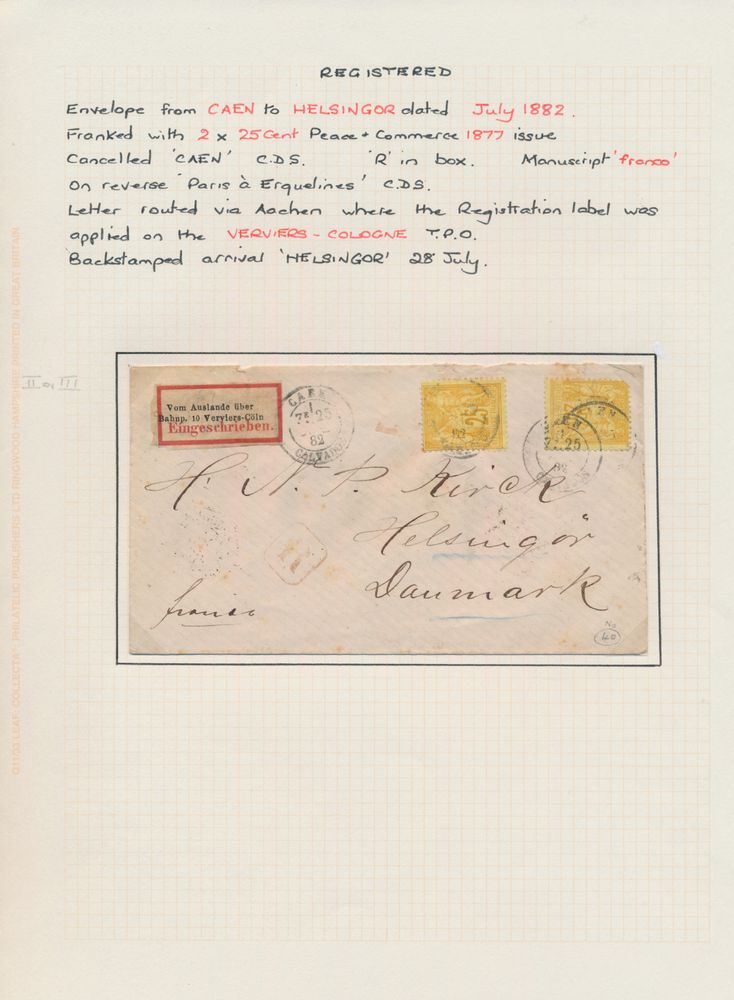 REGISTERED
Envelope from CAEN to HELSINGOR dated July 1882.
Franked with 2 x 25 Cent Peace + Commerce 1877 issue
Cancelled 'CAEN' C.D.S. 'R' in box. Manuscript 'franco'
On reverse 'Paris à Erquelines' C.D.S.
Letter routed via Aachen where the Registration label was
applied on the VERVIERS - COLOGNE T.P.O.
Backstamped arrival 'HELSINGOR' 28 July.
II or III
Vom Auslande über
Bahnp. 10 Verviers-Cöln
Eingeschrieben.
CAEN
25
82
CALVADOS
25
82
CAEN
25
82
H. N. P. Kirck
Helsingör
Danmark
franco
R
No
40
Q11/33 LEAF COLLECTA PHILATELIC PUBLISHERS LTD RINGWOOD HAMPSHIRE PRINTED IN GREAT BRITAIN